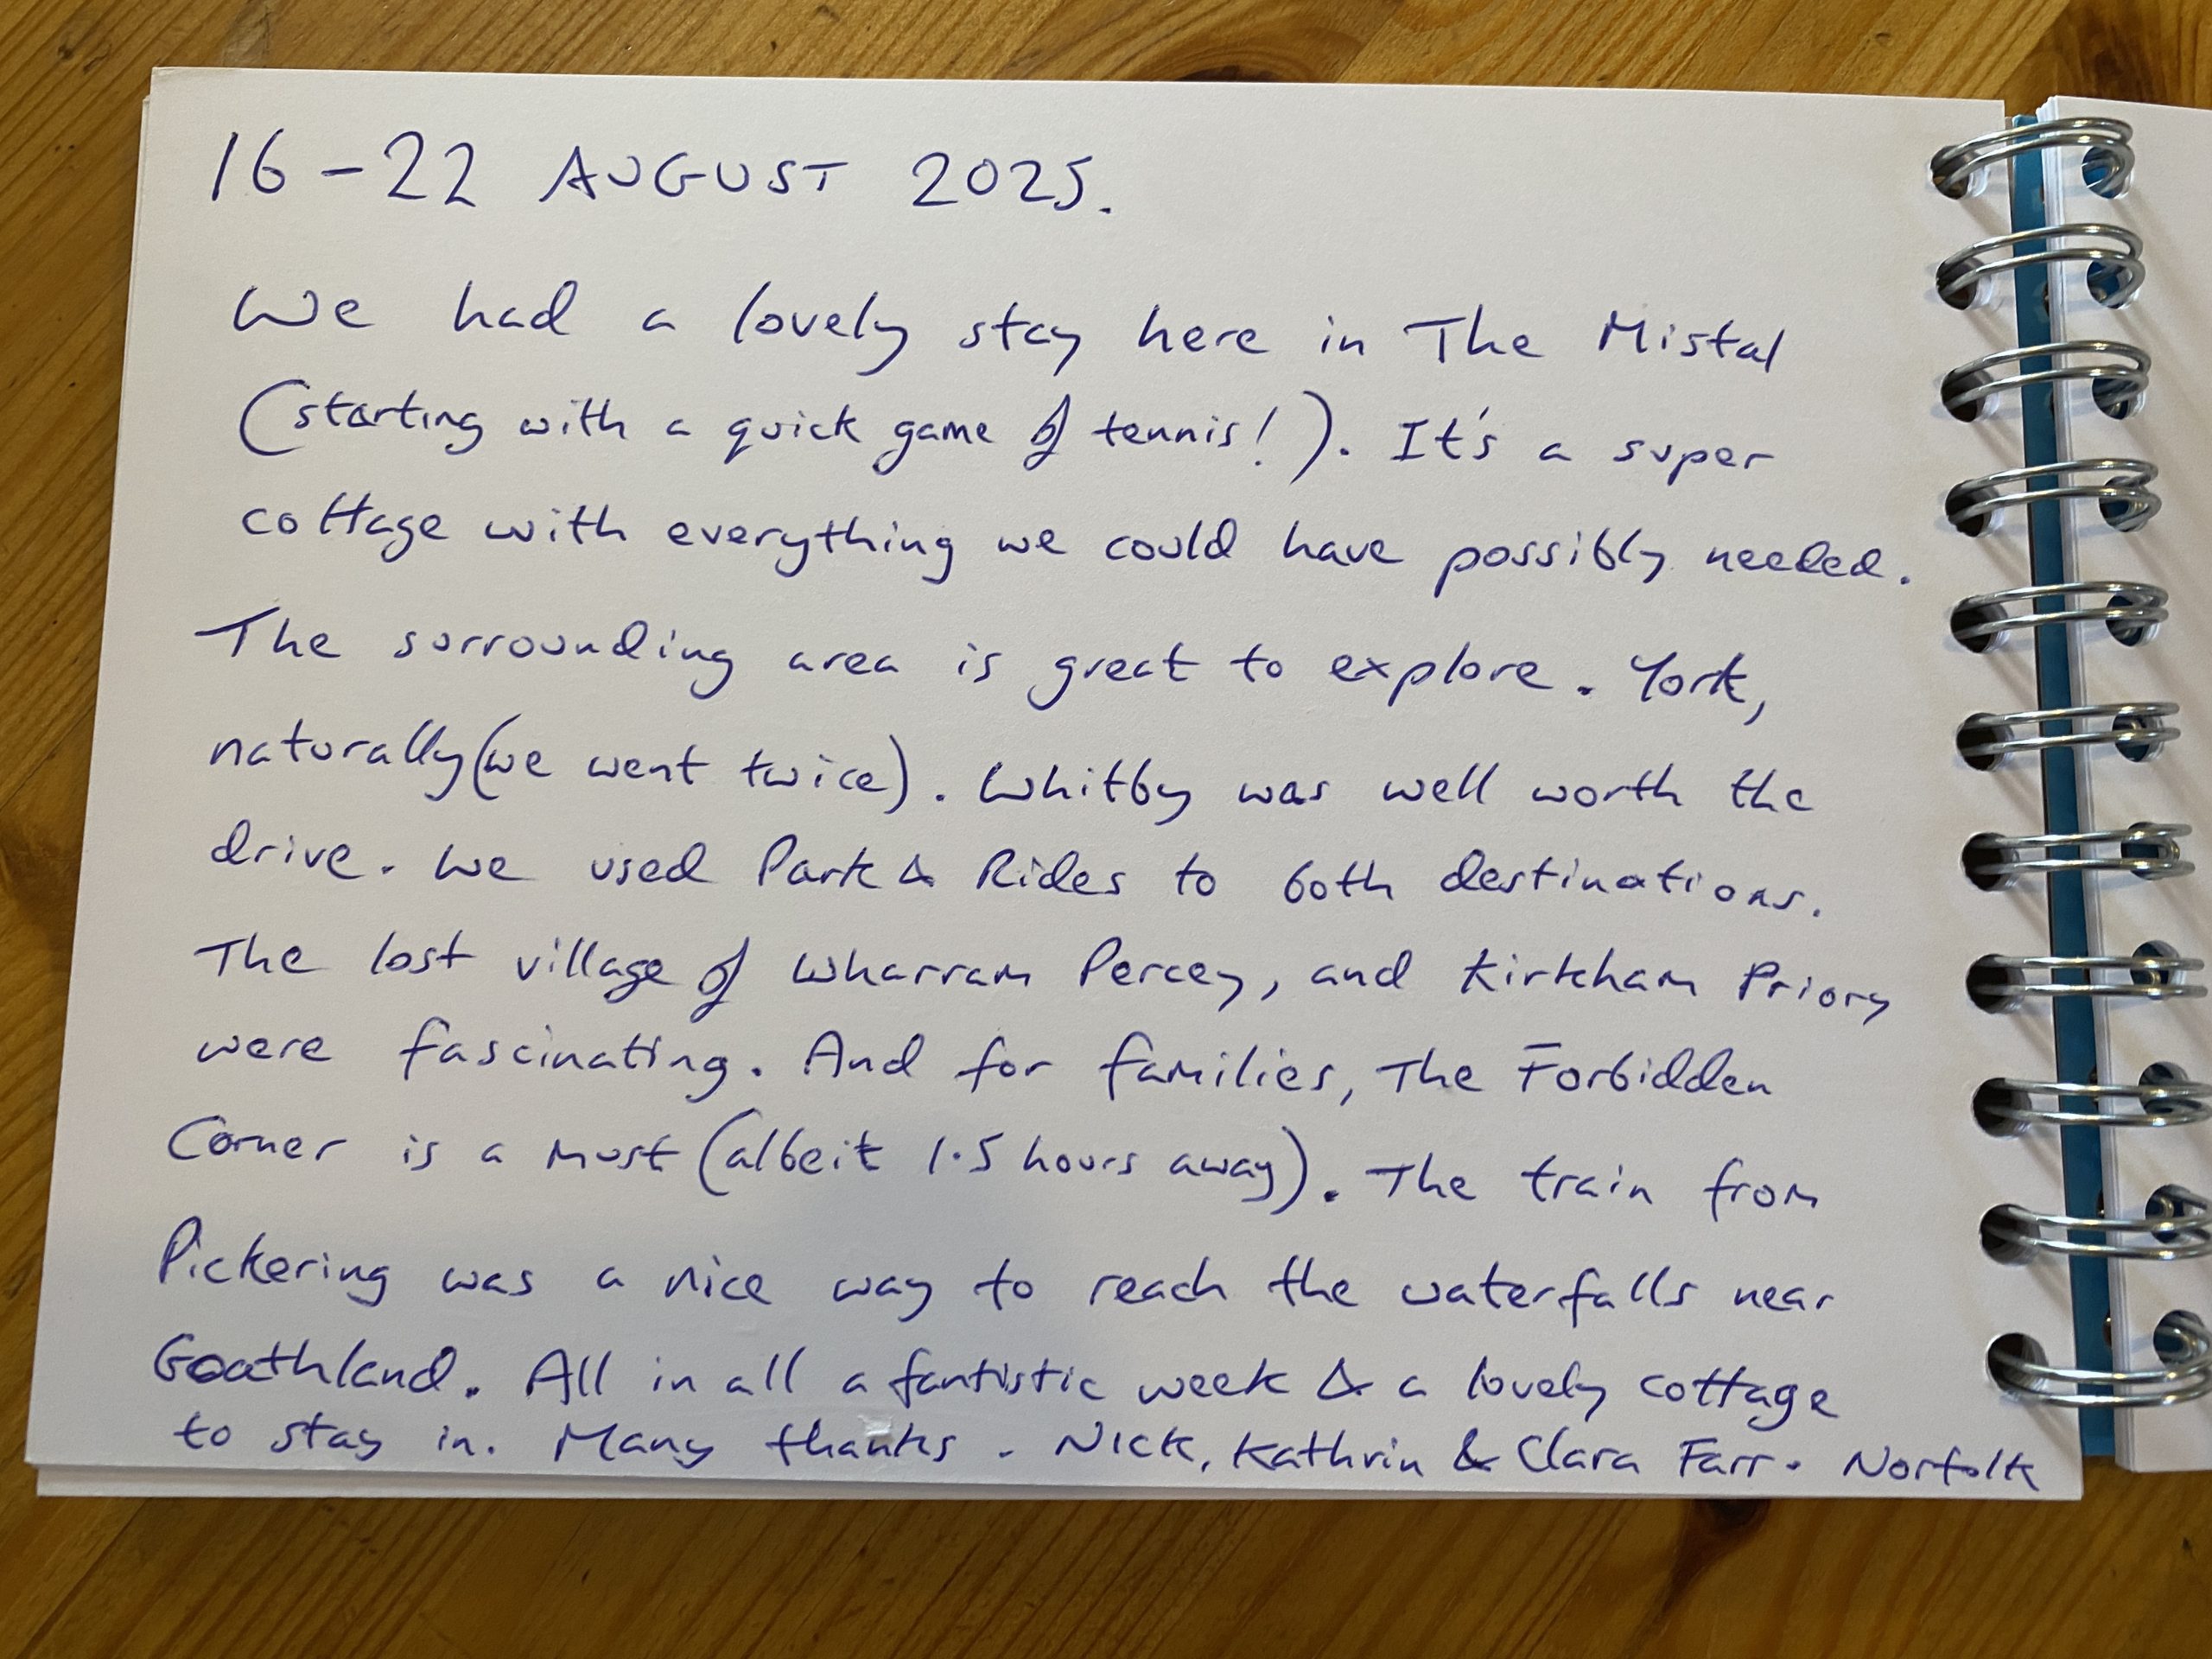 16 - 22 AUGUST 2025.
We had a lovely stay here in The Mistal
(starting with a quick game of tennis!). It's a super
cottage with everything we could have possibly needed.
The surrounding area is great to explore. York,
naturally (we went twice). Whitby was well worth the
drive. We used Park & Rides to both destinations.
The lost village of Wharram Percey, and Kirkham Priory
were fascinating. And for families, The Forbidden
Corner is a must (albeit 1.5 hours away). The train from
Pickering was a nice way to reach the waterfalls near
Goathland. All in all a fantistic week & a lovely cottage
to stay in. Many thanks. Nick, Kathrin & Clara Farr. Norfolk